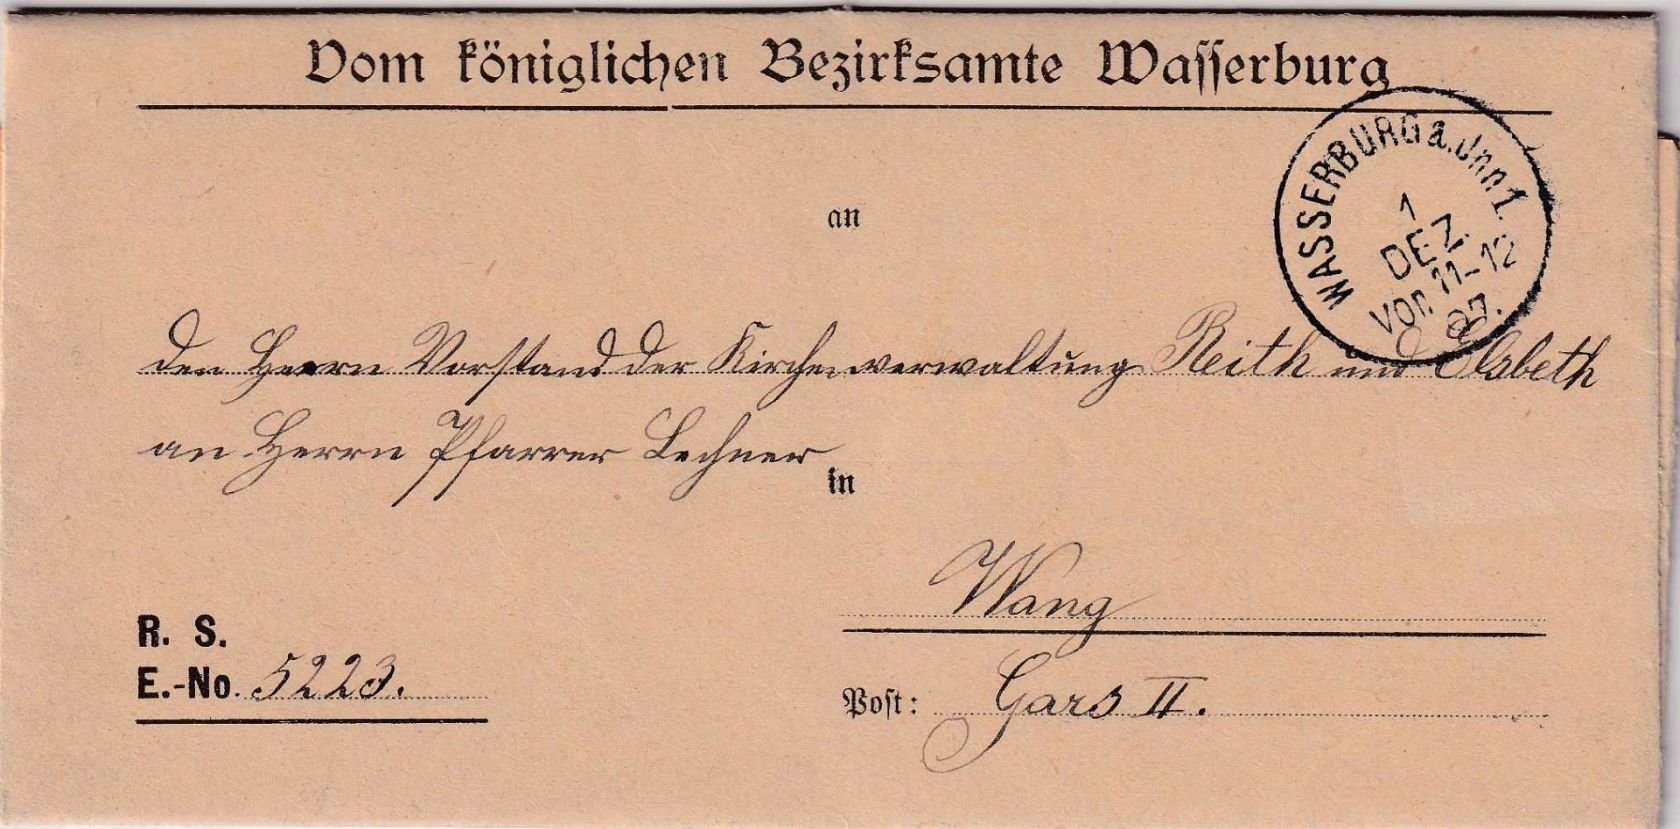 Vom königlichen Bezirksamte Wasserburg
WASSERBURG a. Jnn 1.
1
DEZ.
Vor. 11-12
97.
an
den Herrn Vorstand der Kirchenverwaltung Reith und Elsbeth
an Herrn Pfarrer Lechner
in
Wang
R. S.
E.-No. 5223.
Post: Gars II.